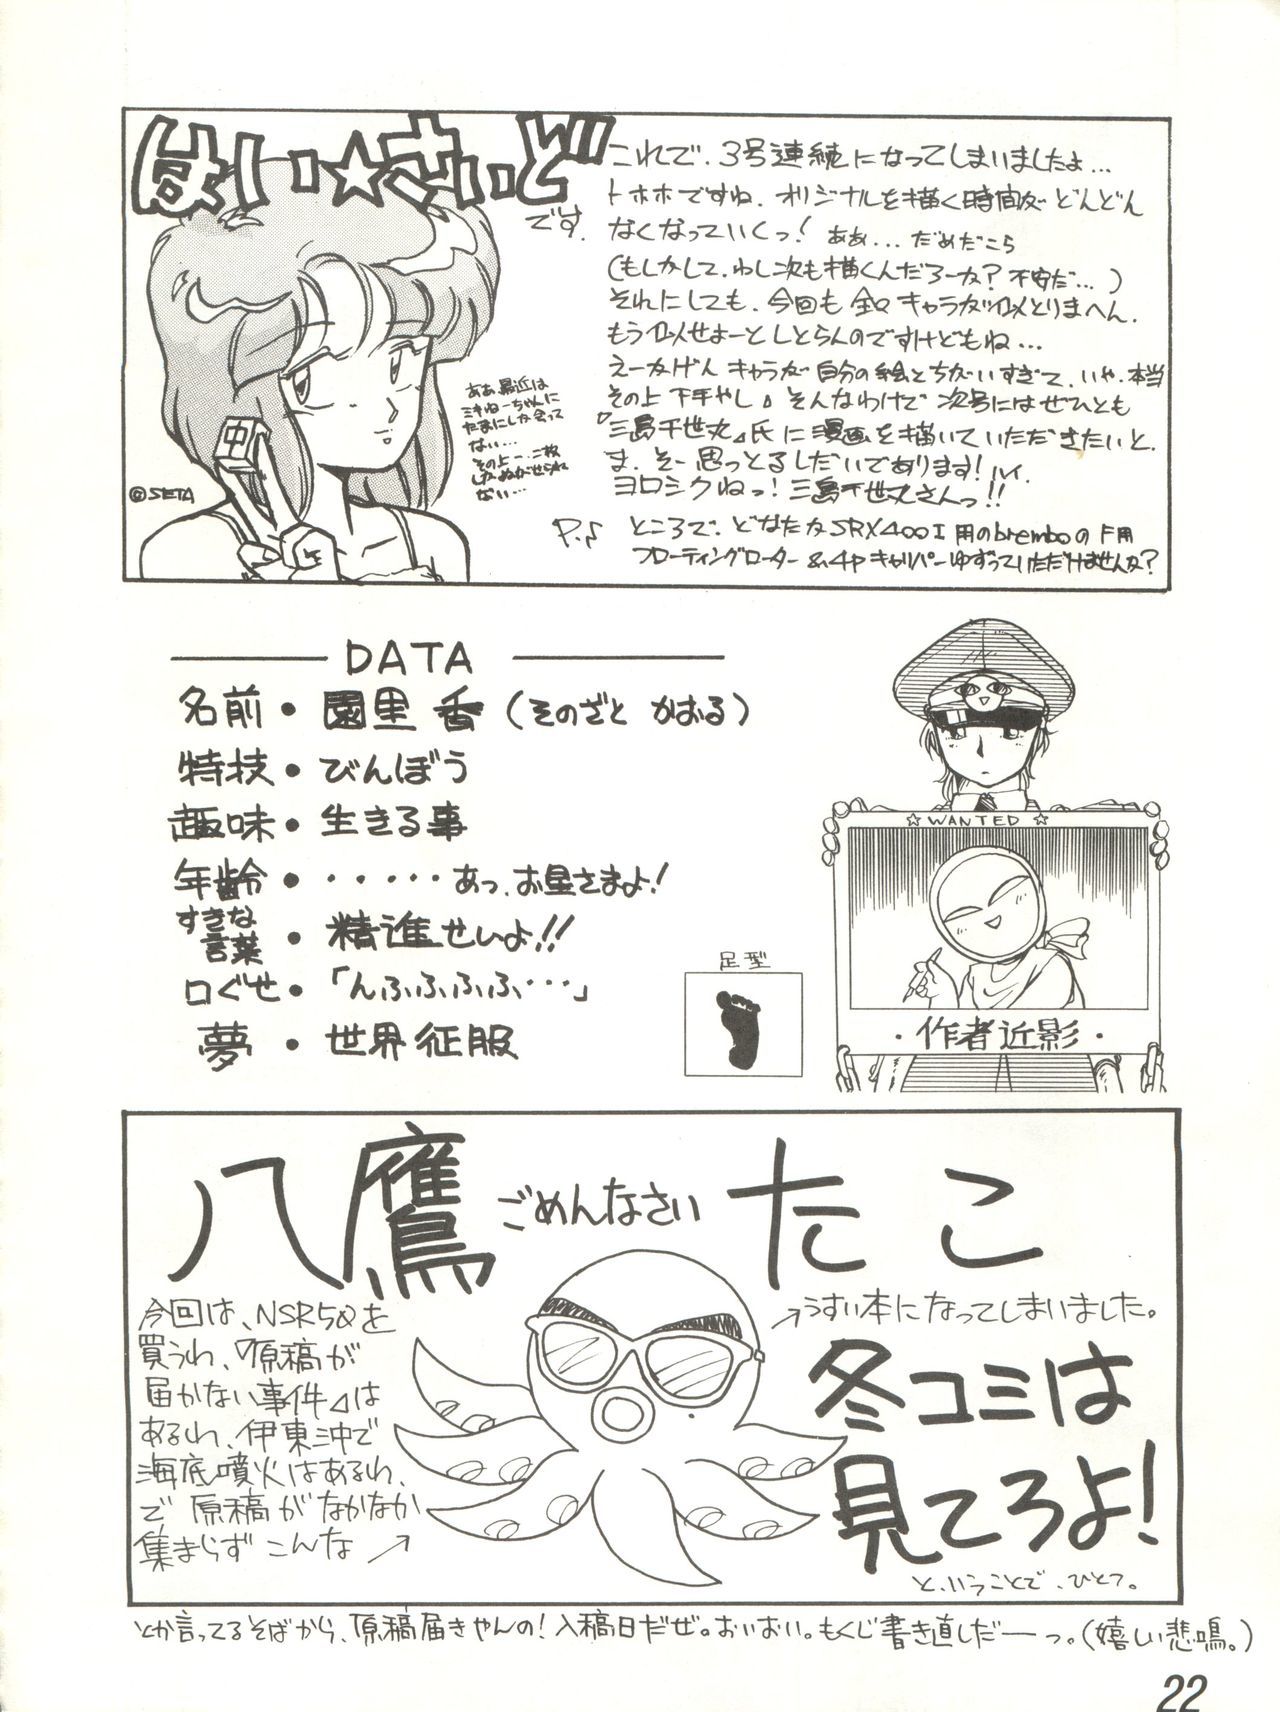 はい☆さいど
です.
これで.3号連続になってしまいましたよ...
トホホですね.オリジナルを描く時間がどんどん
なくなっていくっ!ああ...だめだこら
(もしかして.わし次も描くんだろーか?不安だ...)
それにしても.今回も全々キャラが似とりまへん.
もう似せよーとしとらんのですけどもね...
えーかげんキャラが自分の絵とちがいすぎて.いや.本当
その上下手やし。そんなわけで次号にはぜひとも
『三島千世丸』氏に漫画を描いていただきたいと.
ま.そー思っとるしだいであります!ハイ.
ヨロシクねっ!三島千世丸さんっ!!
P.S ところで.どなたかSRX400I用のbremboのF用
フローティングローター&4Pキャリパーゆずっていただけませんか?
ああ.最近は
ミキねーちゃんに
たまにしか会って
ない...
その上一.二枚
しかぬがせられ
ない...
©SETA
DATA
名前・園里 香(そのざと かおる)
特技・びんぼう
趣味・生きる事
年齢・・・・・・あっ.お星さまよ!
すきな
言葉・精進せいよ!!
口ぐせ・「んふふふふ・・・」
夢・世界征服
足型
☆WANTED☆
・作者近影・
八鷹 ごめんなさい たこ
今回は、NSR50を
買うわ、『原稿が
届かない事件』は
あるわ、伊東沖で
海底噴火はあるわ、
で原稿がなかなか
集まらずこんな
うすい本になってしまいました。
冬コミは
見てろよ!
と、いうことで、ひとつ。
とか言ってるそばから、原稿届きやんの!入稿日だぜ。おいおい。もくじ書き直しだーっ。(嬉しい悲鳴。)
22